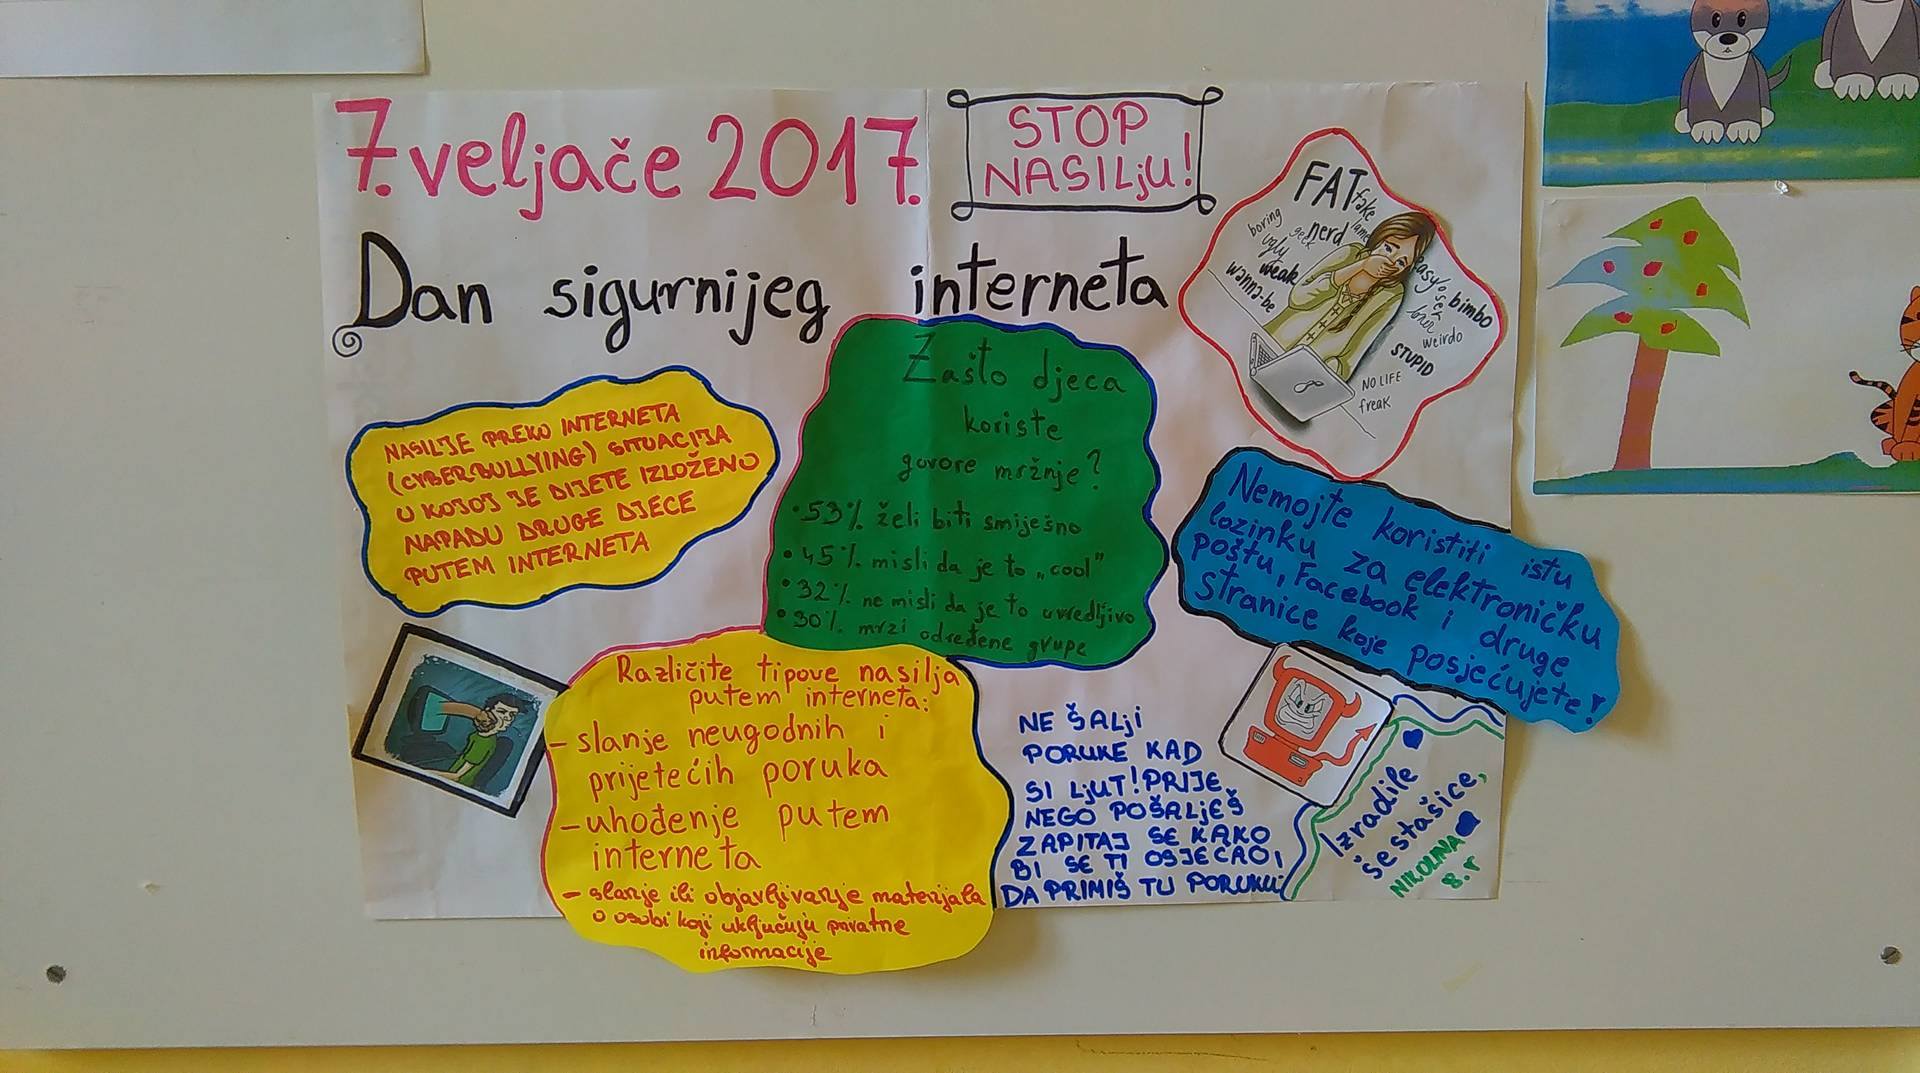 7. veljače 2017.
STOP
NASILjU!
Dan sigurnijeg interneta
FAT
fake
lame
boring
geek
nerd
ugly
weak
wanna-be
easy
loser
bimbo
weirdo
STUPID
NO LIFE
freak
NASILJE PREKO INTERNETA
(CYBERBULLYING) SITUACIJA
U KOJOJ JE DIJETE IZLOŽENO
NAPADU DRUGE DJECE
PUTEM INTERNETA
Zašto djeca
koriste
govore mržnje?
• 53% želi biti smiješno
• 45% misli da je to „cool"
• 32% ne misli da je to uvredljivo
• 30% mrzi određene grupe
Nemojte koristiti istu
lozinku za elektroničku
poštu, Facebook i druge
stranice koje posjećujete!
Različite tipove nasilja
putem interneta:
- slanje neugodnih i
prijetećih poruka
- uhođenje putem
interneta
- slanje ili objavljivanje materijala
o osobi koji uključuju privatne
informacije
NE ŠALji
PORUKE KAD
SI LjUT! PRIJE
NEGO POŠALjEŠ
ZAPITAJ SE KAKO
BI SE TI OSJEĆAO,
DA PRIMIŠ TU PORUKU.
Izradile
šestašice,
NIKOLINA
8.r